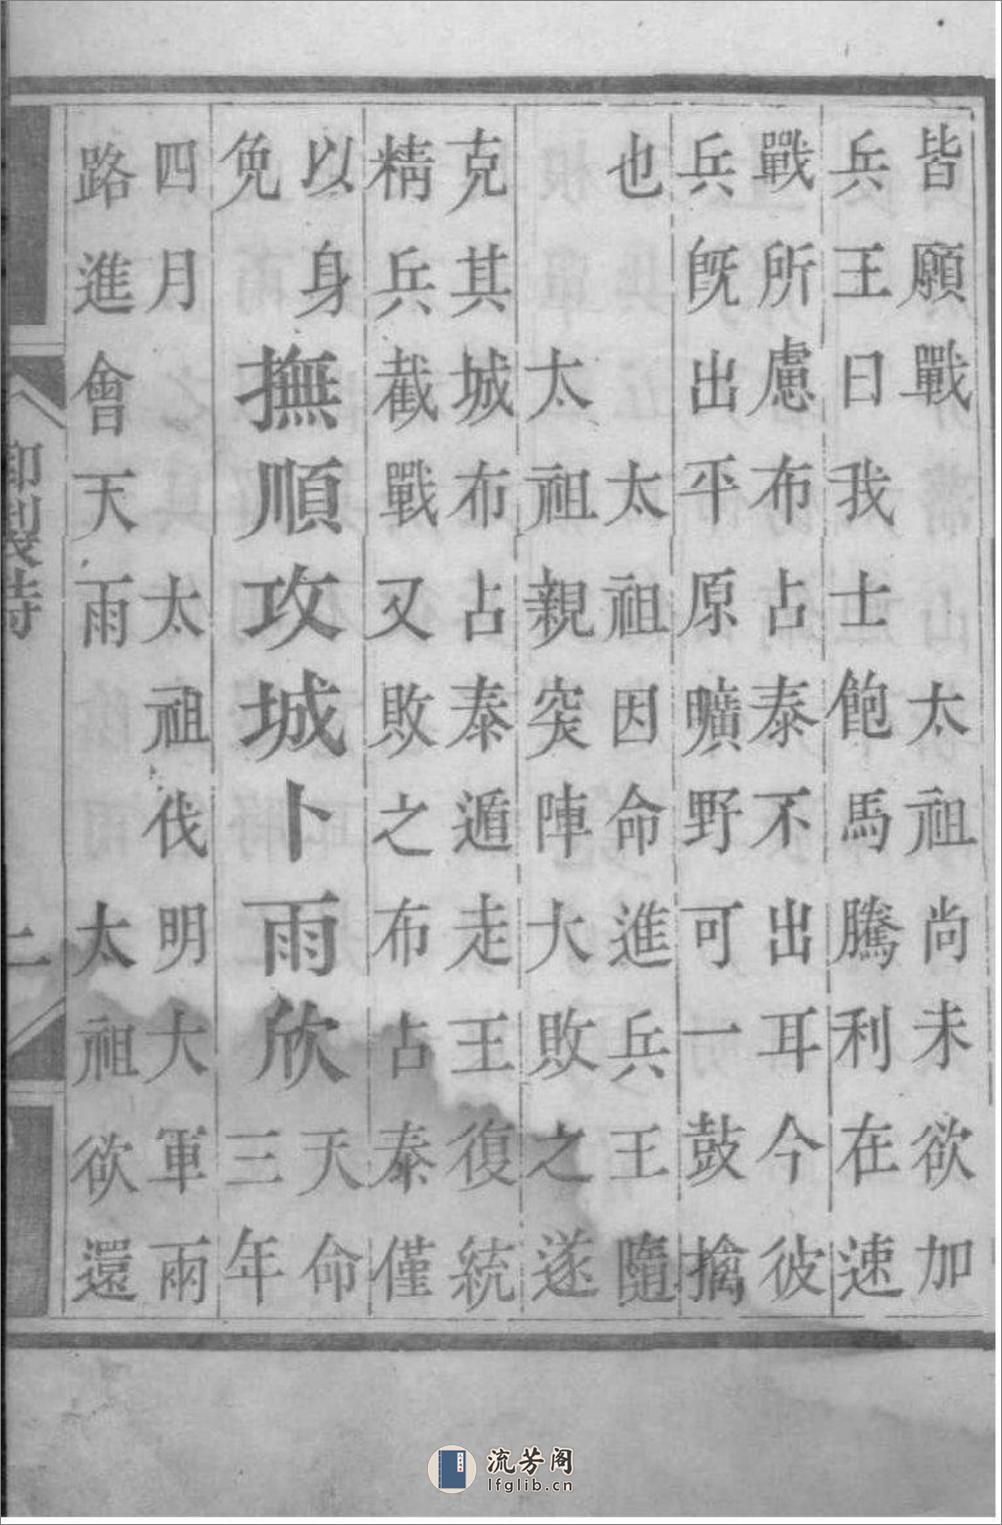 皆願戰　太祖尚未欲加
兵王曰我士飽馬騰利在速
戰所慮布占泰不出耳今彼
兵旣出平原曠野可一鼓擒
也　　太祖因命進兵王隨
　　太祖親突陣大敗之遂
克其城布占泰遁走王復統
精兵截戰又敗之布占泰僅
以身
免
撫順攻城卜雨欣
天命
三年
四月　　太祖伐明大軍兩
路進會天雨　　太祖欲還
御製詩
二
流芳阁
lfglib.cn